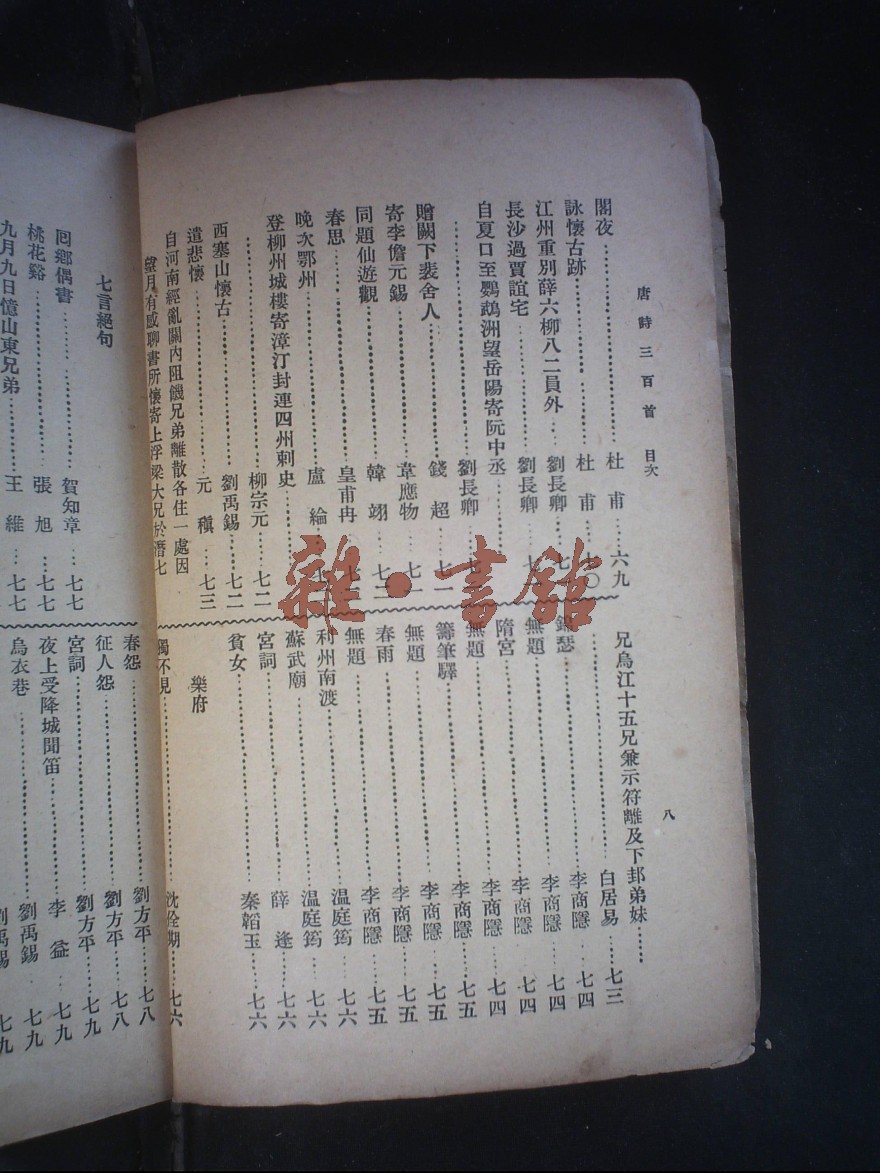 唐詩三百首 目次
八
閣夜……杜甫……六九
詠懷古跡……杜甫……七〇
江州重別薛六柳八二員外…劉長卿…七
長沙過賈誼宅……劉長卿…七
自夏口至鸚鵡洲望岳陽寄阮中丞……
……劉長卿…七
贈闕下裴舍人……錢超…七一
寄李儋元錫……韋應物…七一
同題仙遊觀……韓翃…七二
春思……皇甫冉…七二
晚次鄂州……盧綸…七
登柳州城樓寄漳汀封連四州刺史……
……柳宗元…七二
西塞山懷古……劉禹錫…七二
遣悲懷……元稹…七三
自河南經亂關內阻饑兄弟離散各住一處因
望月有感聊書所懷寄上浮梁大兄於潛七
兄烏江十五兄兼示符離及下邽弟妹……
……白居易……七三
錦瑟……李商隱…七四
無題……李商隱…七四
隋宮……李商隱…七四
無題……李商隱…七四
籌筆驛……李商隱…七五
無題……李商隱…七五
春雨……李商隱…七五
無題……李商隱…七五
利州南渡……溫庭筠…七六
蘇武廟……溫庭筠…七六
宮詞……薛逢…七六
貧女……秦韜玉…七六
樂府
獨不見……沈佺期……七六
七言絕句
回鄉偶書……賀知章……七七
桃花谿……張旭…七七
九月九日憶山東兄弟……王維…七七
春怨……劉方平……七八
征人怨……劉方平…七八
宮詞……劉方平……七九
夜上受降城聞笛……李益…七九
烏衣巷……劉禹錫…七九
劉禹錫…七九
雜·書館